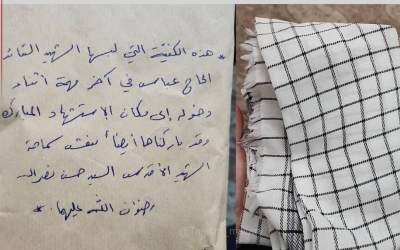 * هذه الكفيّة التي لبسها الشهيد القائد
الحاج عباس في آخر مهمة أثناء
دخوله إلى مكان الاستشهاد المبارك
وقد باركناها أيضاً بنعش سماحة
الشهيد الأقدس السيد حسن نصرالله
رضوان الله عليهما. *